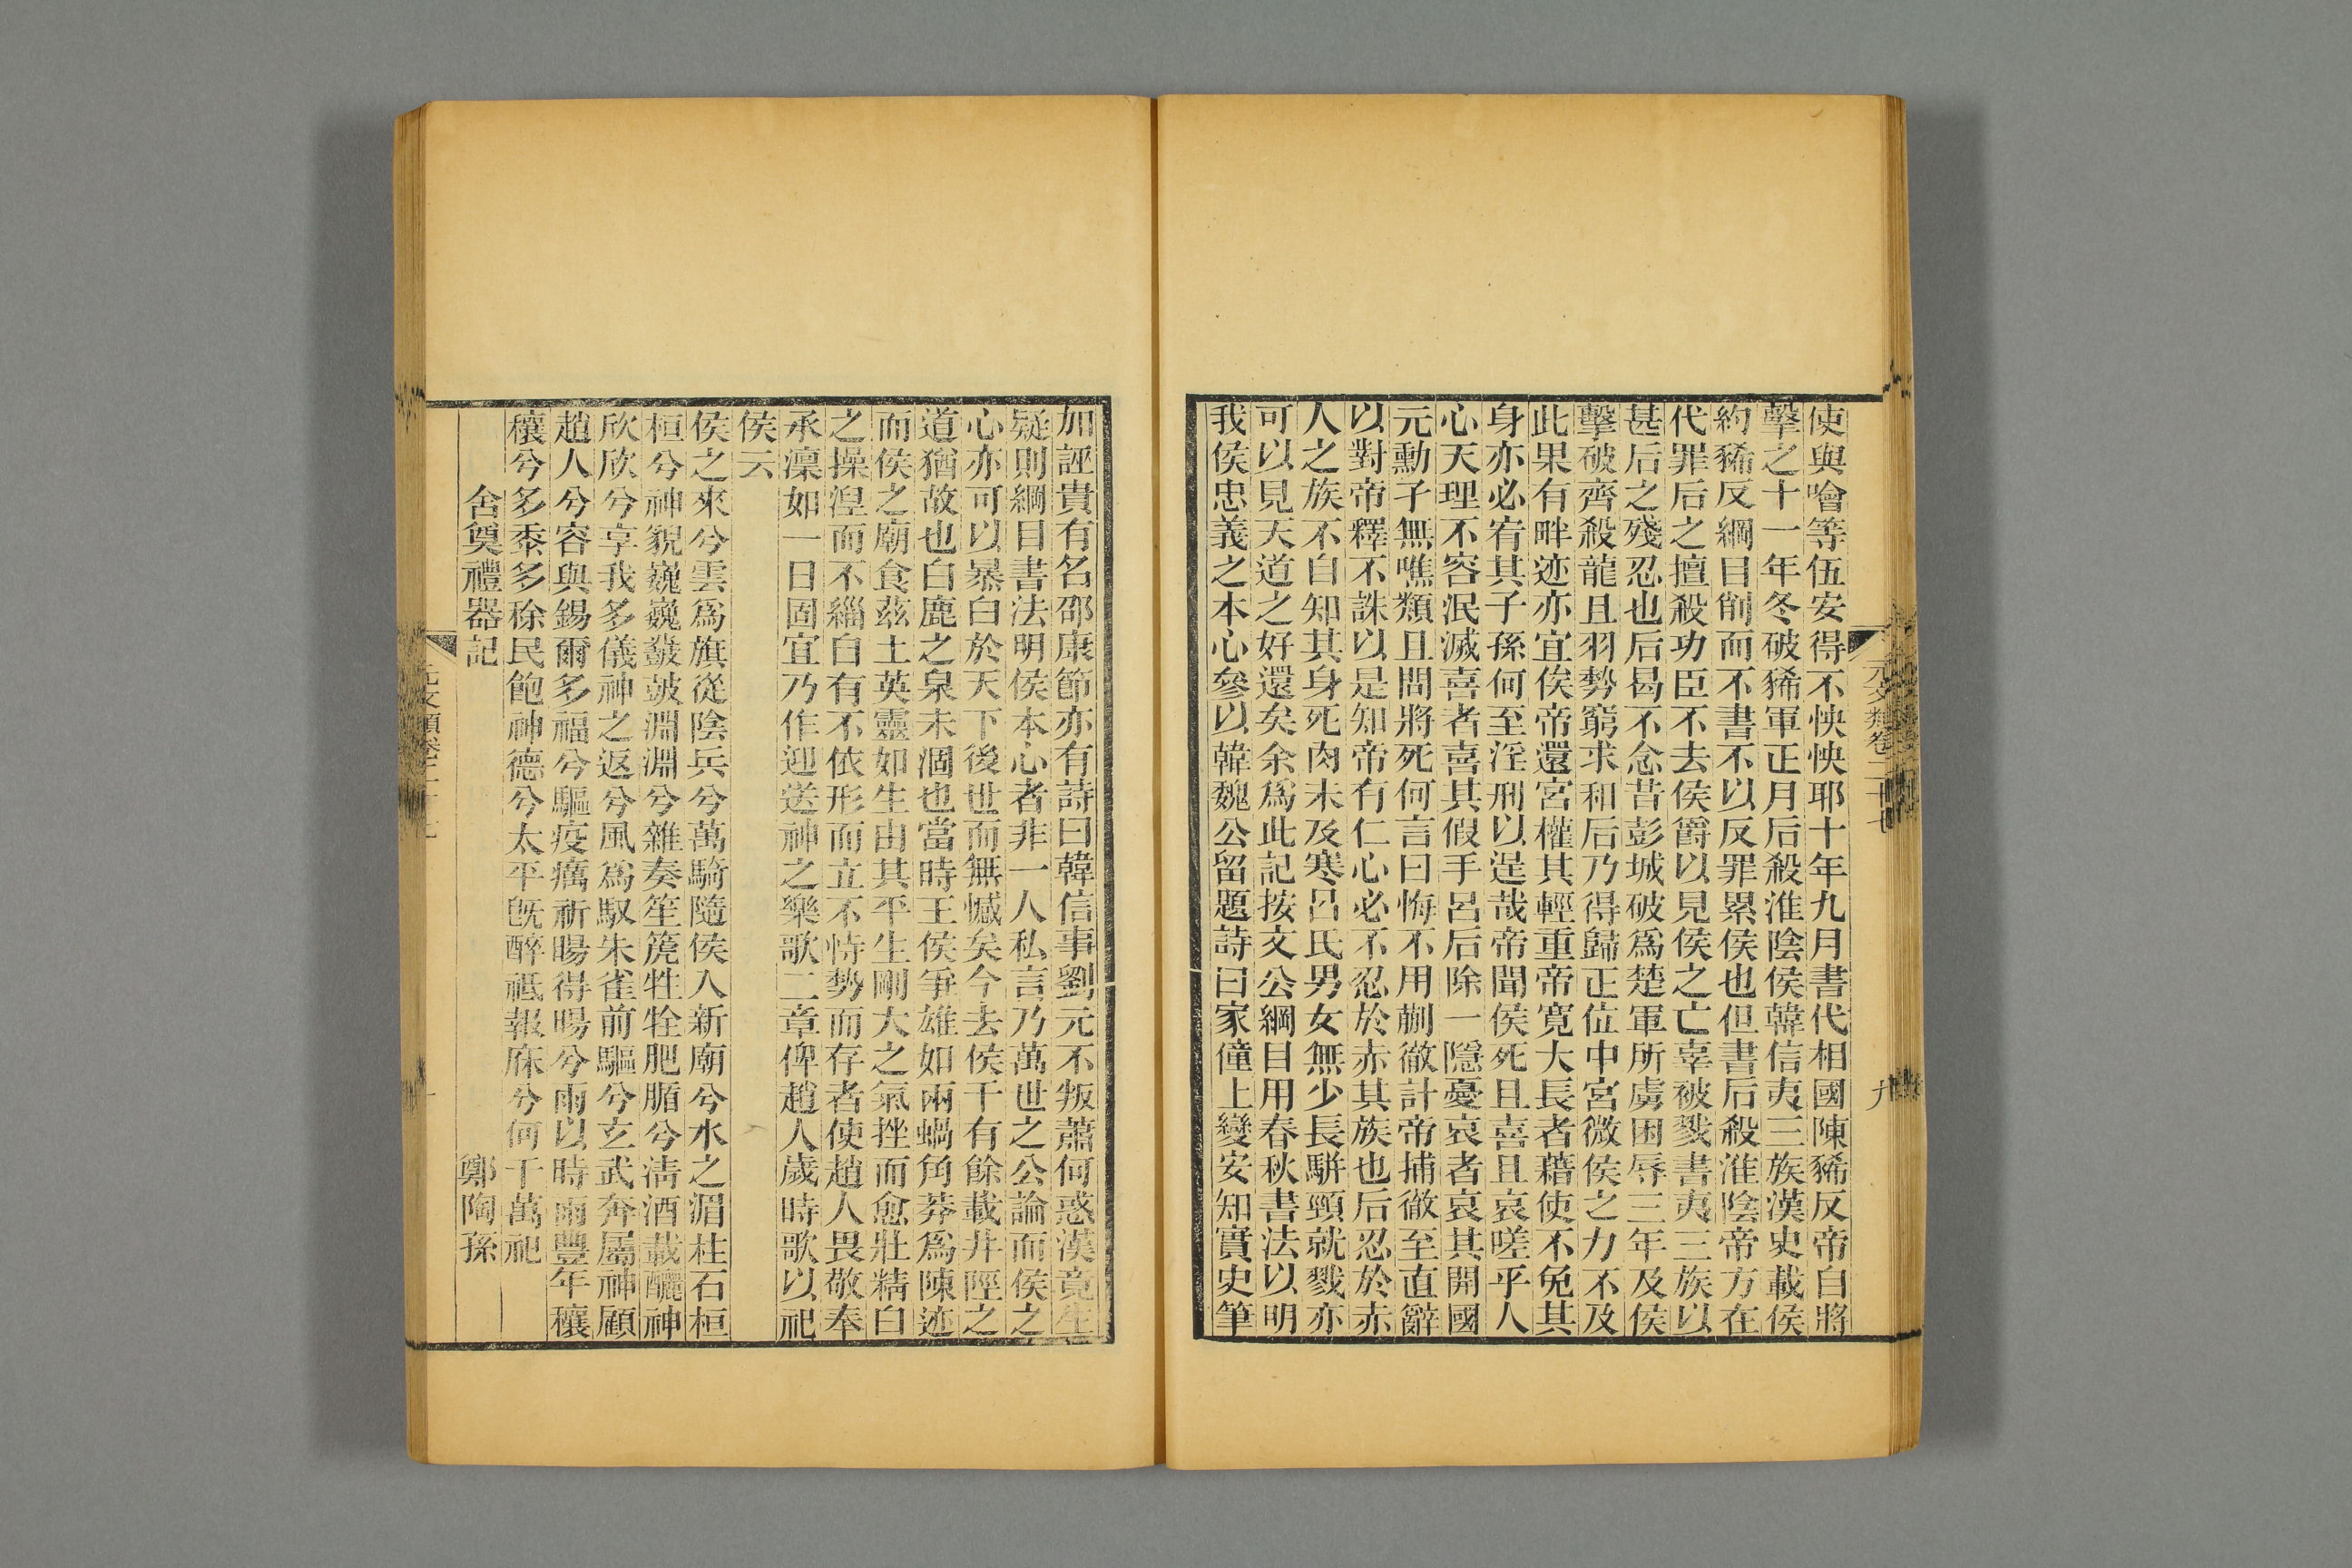 使與噲等伍安得不怏怏耶十年九月書代相國陳豨反帝自將
擊之十一年冬破豨軍正月后殺淮陰侯韓信夷三族漢史載侯
約豨反綱目削而不書不以反罪累侯也但書后殺淮陰帝方在
代罪后之擅殺功臣不去侯爵以見侯之亡辜被戮書夷三族以
甚后之殘忍也后曷不念昔彭城破爲楚軍所虜困辱三年及侯
擊破齊殺龍且羽勢窮求和后乃得歸正位中宮微侯之力不及
此果有畔迹亦宜俟帝還宮權其輕重帝寛大長者藉使不免其
身亦必宥其子孫何至淫刑以逞哉帝聞侯死且喜且哀嗟乎人
心天理不容泯滅喜者喜其假手呂后除一隱憂哀者哀其開國
元勳孑無噍類且問將死何言曰悔不用蒯徹計帝捕徹至直辭
以對帝釋不誅以是知帝有仁心必不忍於赤其族也后忍於赤
人之族不自知其身死肉未及寒呂氏男女無少長駢頸就戮亦
可以見天道之好還矣余爲此記按文公綱目用春秋書法以明
我侯忠義之本心參以韓魏公留題詩曰家僮上變安知實史筆
元文類卷二十七
九
加誣貴有名邵康節亦有詩曰韓信事劉元不叛蕭何惑漢竟生
疑則綱目書法明侯本心者非一人私言乃萬世之公論而侯之
心亦可以暴白於天下後世而無憾矣今去侯千有餘載井陘之
道猶故也白鹿之泉未涸也當時王侯爭雄如兩蝸角莽爲陳迹
而侯之廟食茲土英靈如生由其平生剛大之氣挫而愈壯精白
之操涅而不緇自有不依形而立不恃勢而存者使趙人畏敬奉
承凜如一日固宜乃作迎送神之樂歌二章俾趙人歲時歌以祀
侯云
侯之來兮雲爲旗從陰兵兮萬騎隨侯入新廟兮水之湄柱石桓
桓兮神貌巍巍鼗鼓淵淵兮雜奏笙篪牲牷肥腯兮淸酒載釃神
欣欣兮享我多儀神之返兮風爲馭朱雀前驅兮玄武奔屬神顧
趙人兮容與錫爾多福兮驅疫癘祈暘得暘兮雨以時雨豐年穰
穰兮多黍多稌民飽神德兮太平旣醉祗報庥兮何千萬祀
舍奠禮器記
鄭陶孫